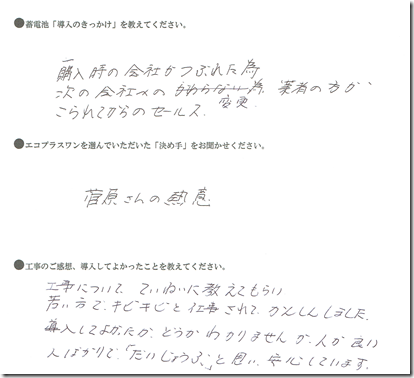 ●蓄電池「導入のきっかけ」を教えてください。
購入時の会社がつぶれた為
次の会社への変更 業者の方が、
こられてからのセールス.
●エコプラスワンを選んでいただいた「決め手」をお聞かせください。
菅原さんの熱意
●工事のご感想、導入してよかったことを教えてください。
工事について、ていねいに教えてもらい
若い方で、キビキビと仕事されて、かんしんしました.
導入してよかったか、どうかわかりませんが、人が良い
人ばかりで、「だいじょうぶ」と思い、安心しています.